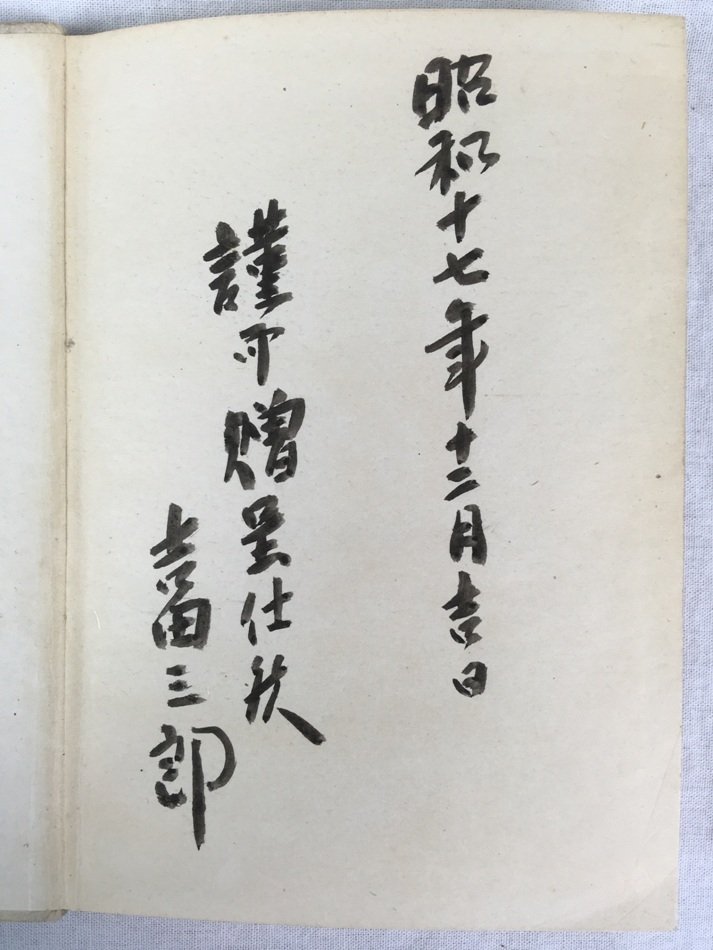 昭和十七年十二月吉日
謹而贈呈仕候
吉田三郎